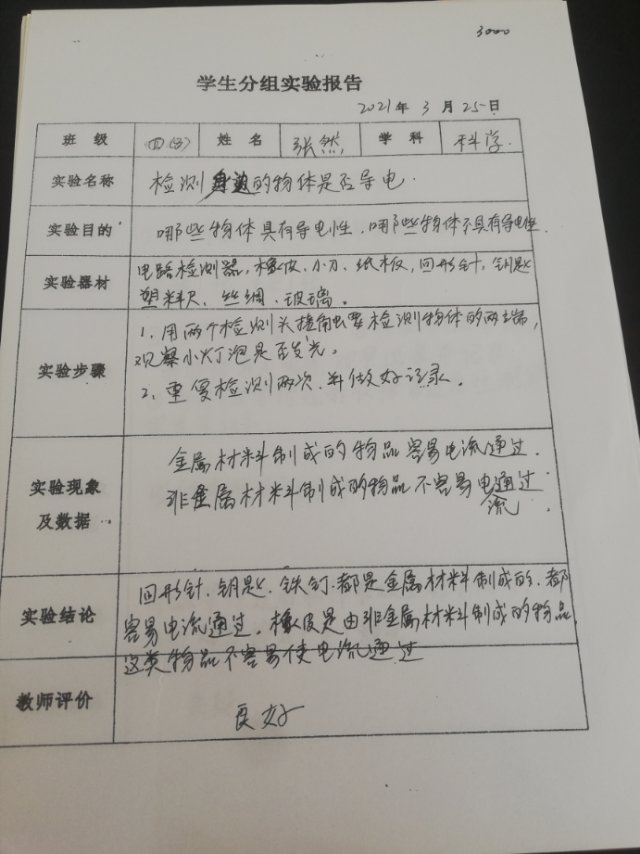 3000
学生分组实验报告
2021年 3 月 25日
班 级 四(3) 姓 名 张然 学 科 科学.
实验名称 检测身边的物体是否导电.
实验目的 哪些物体具有导电性.哪些物体不具有导电性.
实验器材 电路检测器,橡皮,小刀,纸板,回形针,钥匙
塑料尺、丝绸、玻璃。
实验步骤 1、用两个检测头接触要检测物体的两端,
观察小灯泡是否发光。
2、重复检测两次.并做好记录.
实验现象及数据 金属材料制成的物品容易电流通过.
非金属材料制成的物品不容易电流通过.
实验结论 回形针、钥匙、铁钉.都是金属材料制成的.都
容易电流通过.橡皮是由非金属材料制成的物品,
这类物品不容易使电流通过
教师评价 良好